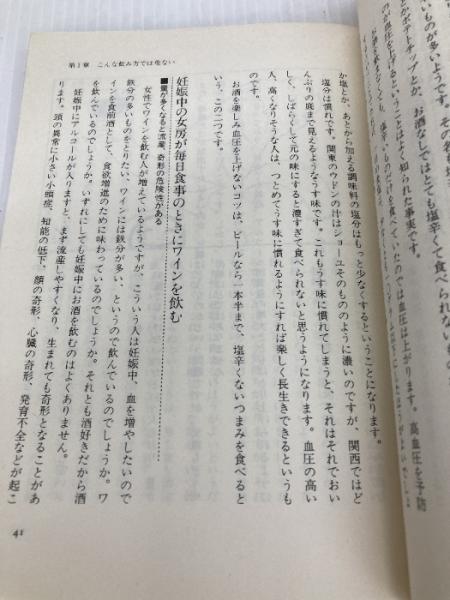 第1章 こんな飲み方では危ない
いものが多いようです。その谷
とかポテトチップとか、お酒なしではとても塩辛くて食べられない
が血圧を上げるということはよく知られた事実です。
だけを食べていたのでは血圧は上がります。高血圧を予防
か塩とか、あとから加える調味料の塩分はもっと少なくするということになります。
塩分は慣れです。関東のウドンの汁はショーユそのもののように濃いのですが、関西ではど
んぶりの底まで見えるようなうす味です。これもうす味に慣れてしまうと、それはそれでおい
しく、しばらくして元の味にすると濃すぎて食べられないと思うようになります。血圧の高い
人、高くなりそうな人は、つとめてうす味に慣れるようにすれば楽しく長生きできるというも
のです。
お酒を楽しみ血圧を上げないコツは、ビールなら一本半まで、塩辛くないつまみを食べると
いう、この二つです。
妊娠中の女房が毎日食事のときにワインを飲む
■量が多くなると流産、奇形の危険性がある
女性でワインを飲む人が増えているようですが、こういう人は妊娠中、血を増やしたいので
鉄分の多いものをとりたい、ワインには鉄分が多い、というので飲んでいるのでしょうか。ワ
インを食前酒として、食欲増進のために味わっているのでしょうか。それとも酒好きだから酒
を飲んでいるのでしょうか。いずれにしても妊娠中にお酒を飲むのはよくありません。
妊娠中にアルコールが入りますと、まず流産しやすくなり、生まれても奇形となることがあ
ります。頭の異常に小さい小頭症、知能の低下、顔の奇形、心臓の奇形、発育不全などが起こ
41